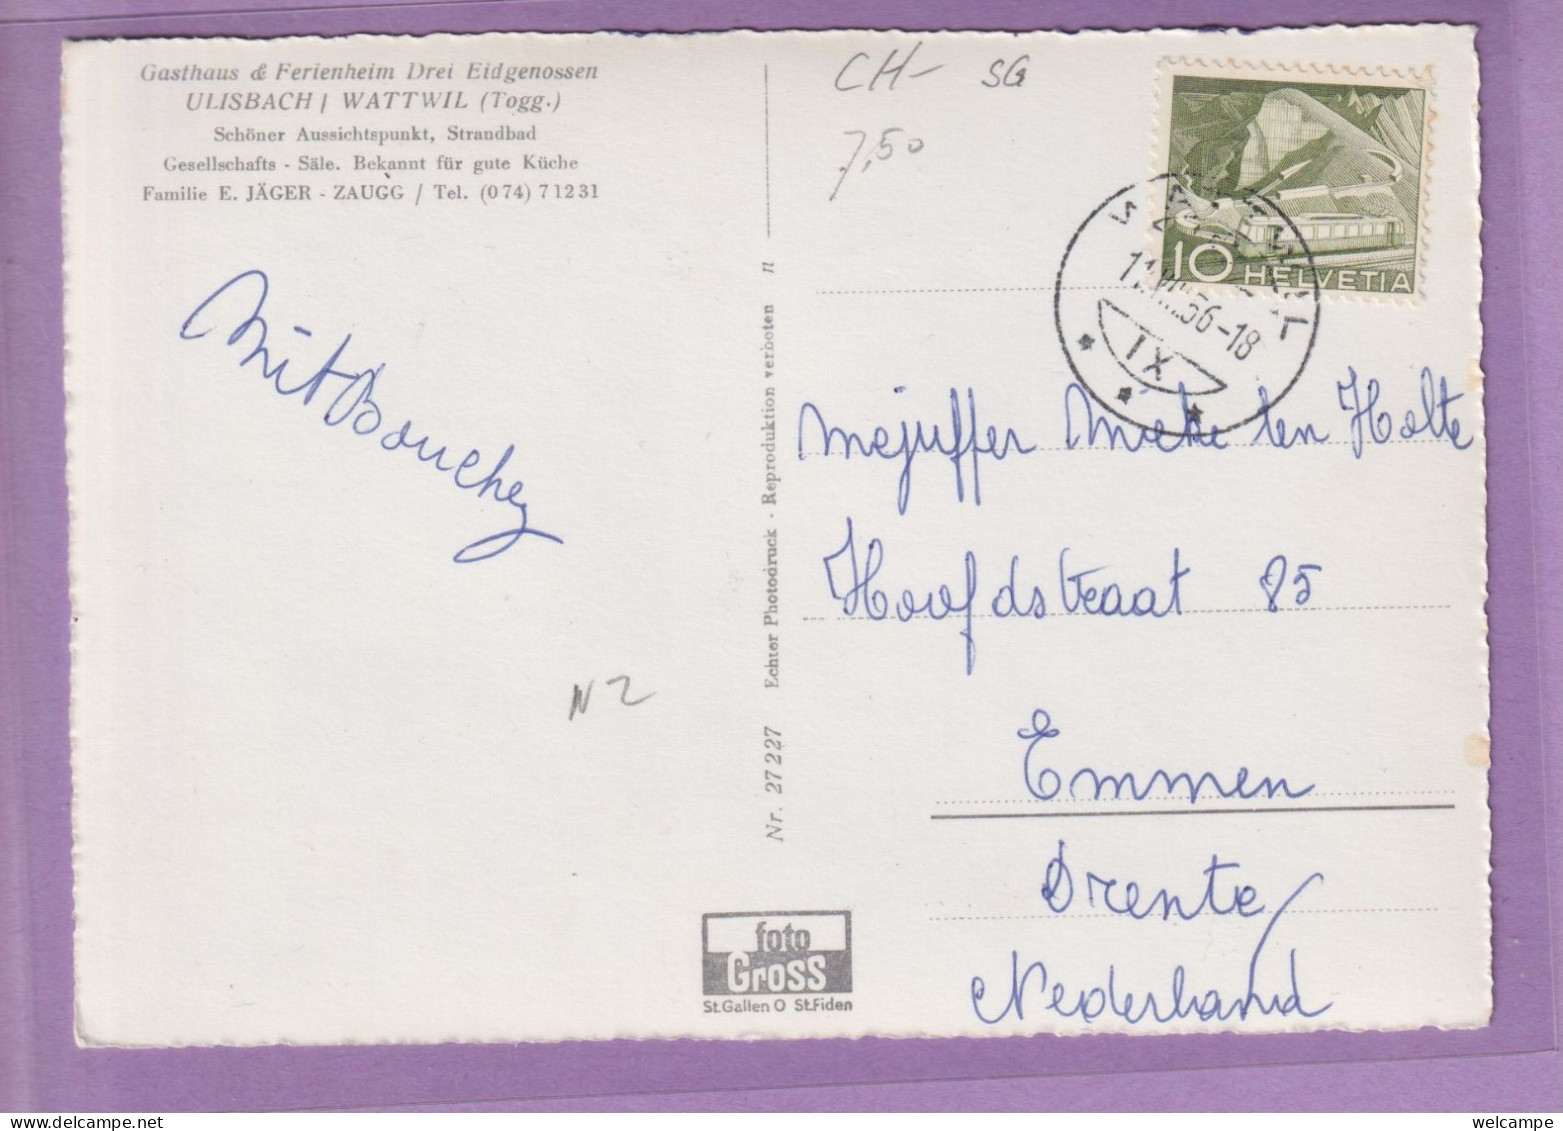 Gasthaus & Ferienheim Drei Eidgenossen
ULISBACH / WATTWIL (Togg.)
Schöner Aussichtspunkt, Strandbad
Gesellschafts - Säle. Bekannt für gute Küche
Familie E. JÄGER - ZAUGG / Tel. (074) 7 12 31
CH- SG
7,50
10 HELVETIA
56-18
IX
Nr. 27 227 Echter Photodruck · Reproduktion verboten n
N 2
mejuffer Mieke ten Holte
Hoofdstraat 85
Emmen
Drente
Nederland
foto
Gross
St.Gallen O St.Fiden
welcampe